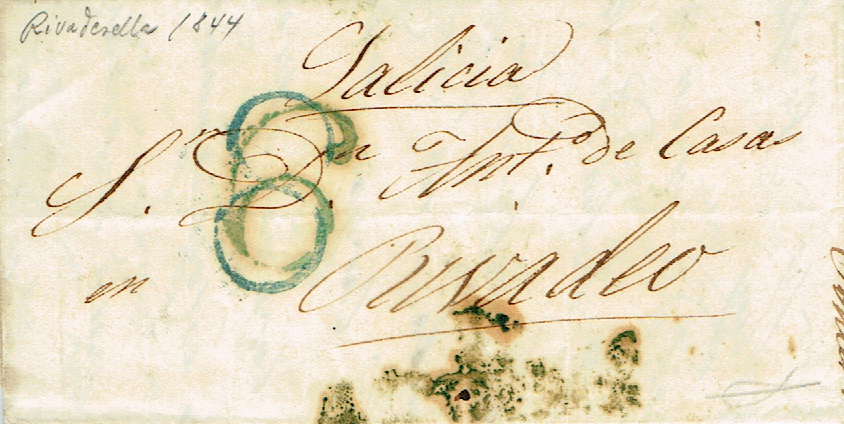 Rivadesella 1844
Galicia
S.r D.n Ant.o de Casas
en Rivadeo
8